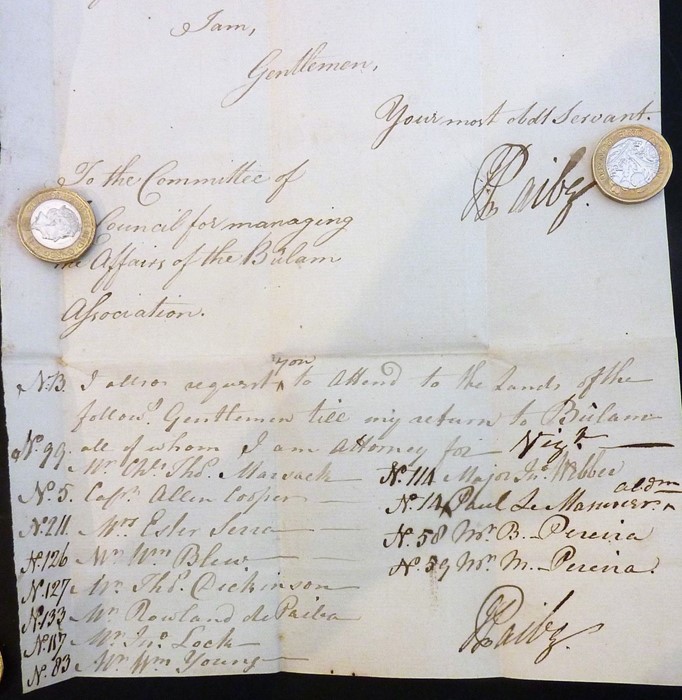 I am,
Gentlemen,
Your most obdt Servant.
Paiba.
To the Committee of
Council for managing
the Affairs of the Bulam
Association.
N.B. I allso request you to Attend to the Lands of the
follow.g Gentlemen till my return to Bulam
all of whom I am Attorney for Vizt
No. 99. Mr. Chs. Thos. Marsack
No. 5. Capn. Allen Cooper
No. 211. Mrs Ester Serra
No. 126 Mr. Wm Blew
No. 127 Mr. Thos. Dickinson
No. 133 Mr. Rowland de Paiba
No. 117 Mr. Jno Lock
No. 83 Mr. Wm Young
No. 114 Major Jno. Webber
No. 14 Paul Le Mesurier aldm
No. 58 Mr. B. Pereira
No. 59 Mr. M. Pereira.
Paiba.